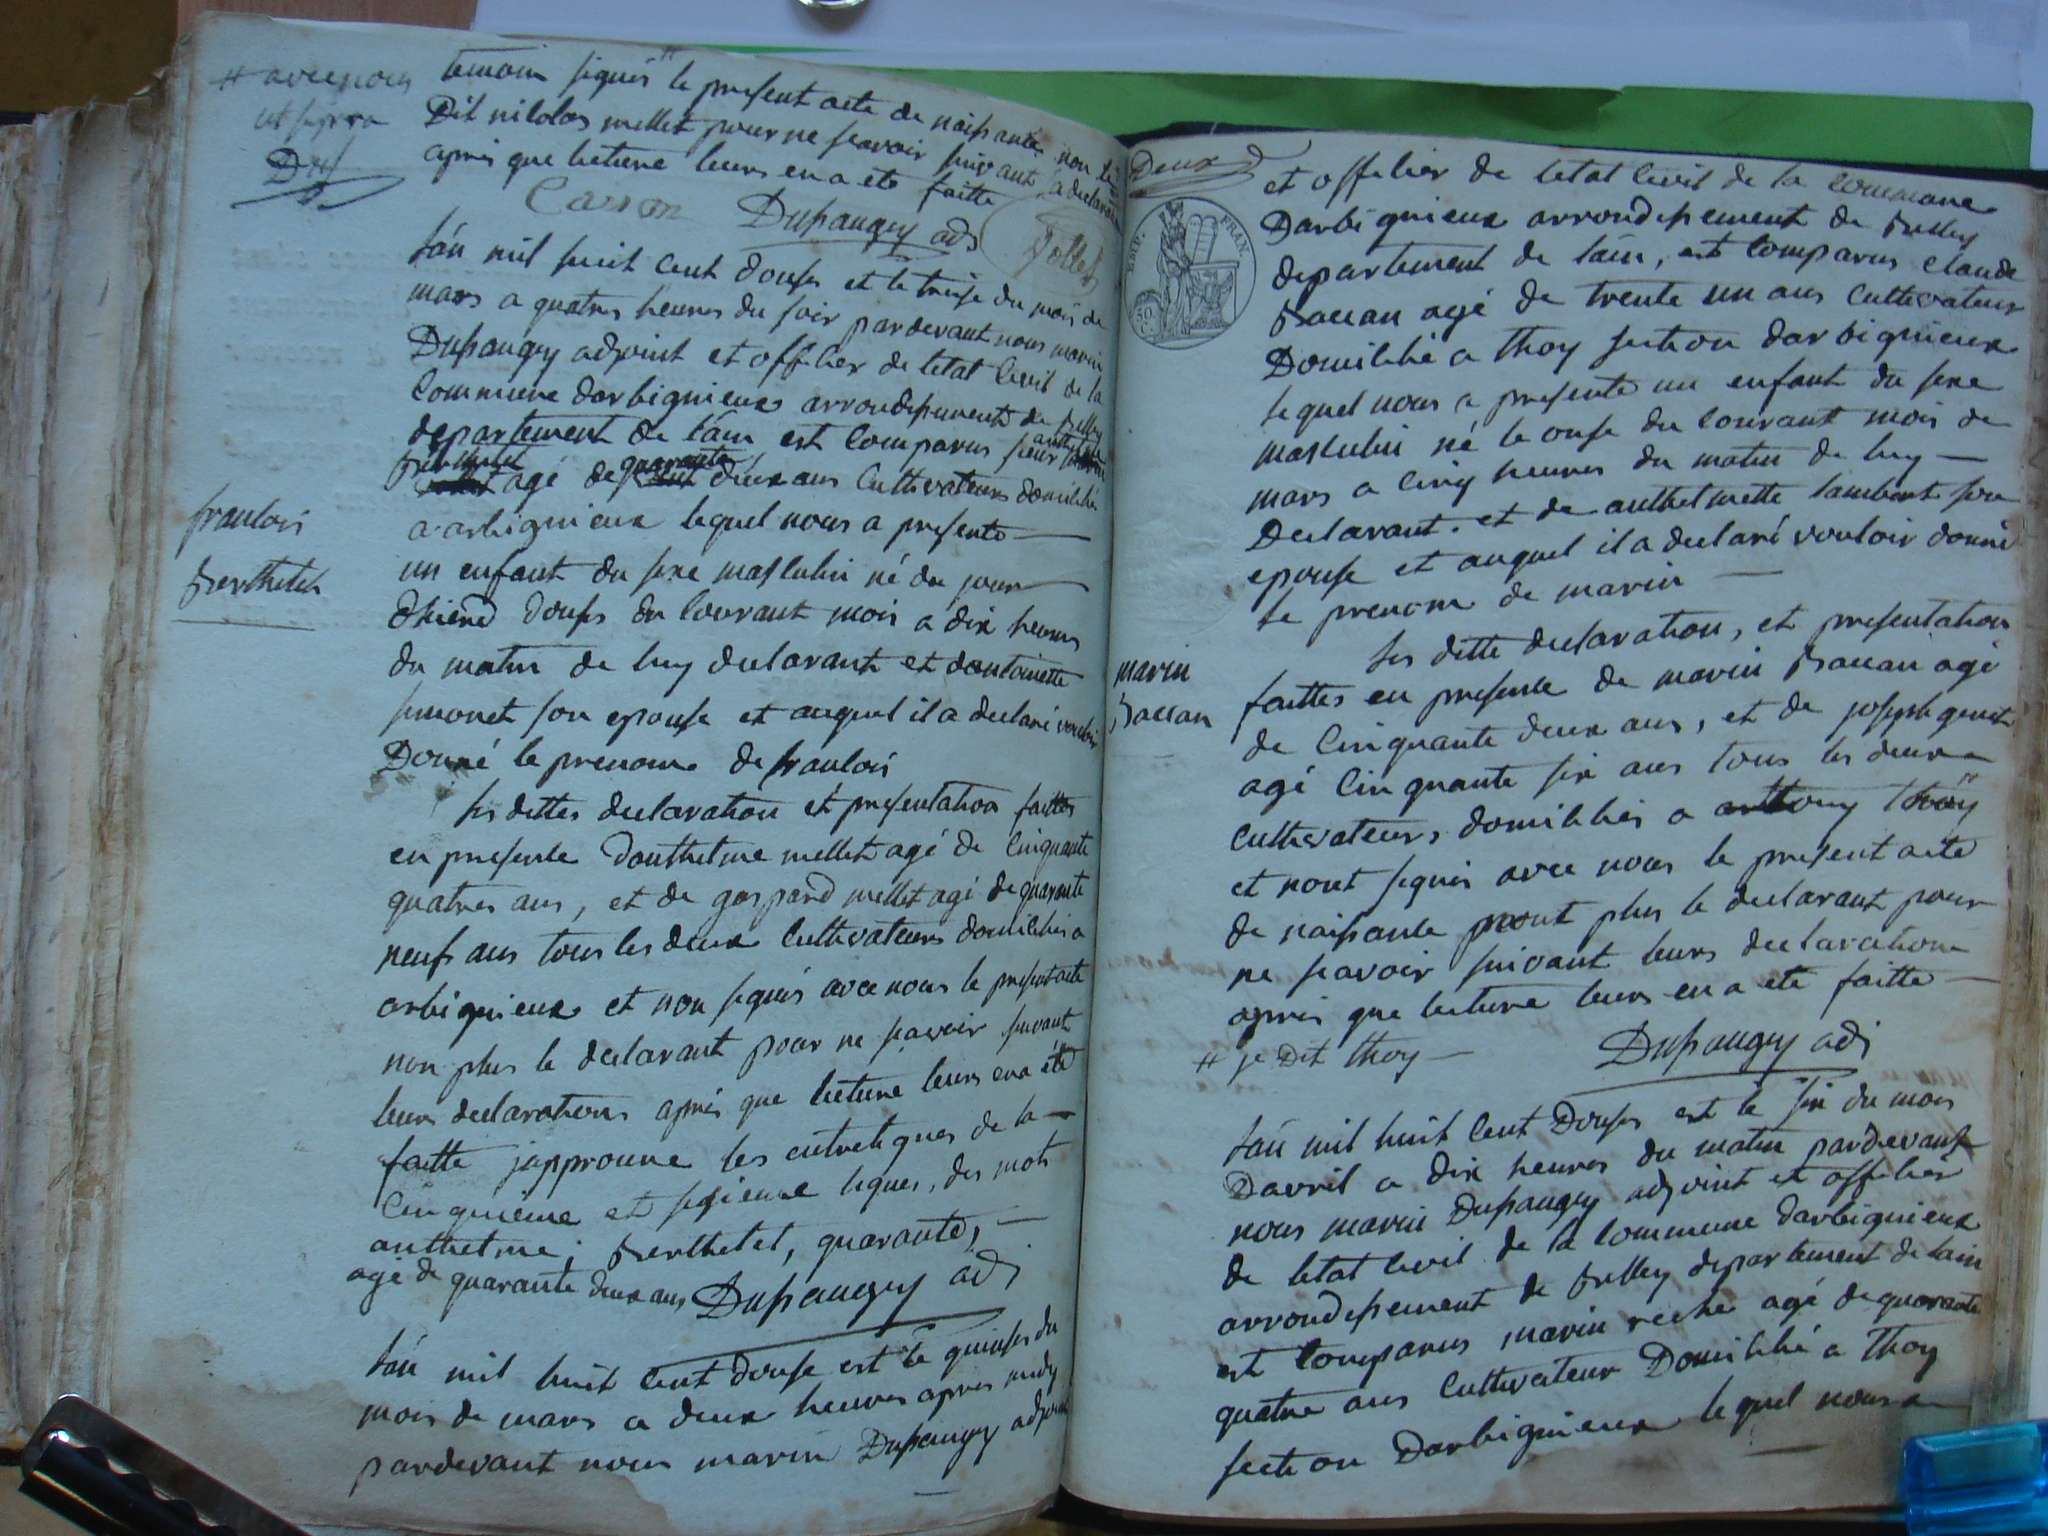 # avec nous
ut supra
D adj
temoin signés # le present acte de naissance non le
Dit nicolas mellet pour ne scavoir suivant sa declaration
apres que lecture leurs en a ete faitte
Carron Dupaugey adj Jollet
Lan mil huit cent douse et le treise du mois de
mars a quatres heures du soir pardevant nous marin
Dupaugey adjoint et officier de letat civil de la
Commune darbignieux arrondissement de Belley
departement de lain est comparus sieur anthelme
Berthelet agé de quarante deux ans Cultivateurs domicilié
a arbignieux lequel nous a presente
francois
Berthelet
un enfant du sexe masculin né du jour
dhierd douse du courant mois a dix heures
du matin de luy declarant et dantoinette
simonet son epouse et auquel il a declaré vouloir
Donné le prenome de francois
les dittes declaration et presentation faittes
en presence danthelme mellet agé de cinquante
quatres ans, et de gaspard mellet agé de quarante
neufs ans tous les deux cultivateurs domiciliés a
arbignieux et non signés avec nous le present acte
non plus le declarant pour ne scavoir suivant
leurs declarations aprés que lecture leurs en a été
faitte japprouve les entrelignes de la
cinquieme et sixieme lignes, des mots
anthelme, Berthelet, quarante,
agé de quarante deux ans Dupaugey adj
Lan mil huit cent douse est le quinses du
mois de mars a deux heures apres midy
pardevant nous marin Dupaugey adjoint
Deux
EMP. FRAN.
50 C.
et officier de letat civil de la commune
Darbignieux arrondissement de Belley
departement de lain, est comparus claude
Baccan agé de trente un ans cultivateur
Domicilié a Thoy section darbignieux
lequel nous a presenté un enfant du sexe
masculin né le onse du courant mois de
mars a cinq heures du matin de luy
Declarant. et de anthelmette lambert son
epouse et auquel il a declaré vouloir donné
le prenom de marin
marin
Baccan
les ditte declaration, et presentation
faittes en presence de marin Baccan agé
de cinquante deux ans, et de joseph genet
agé cinquante six ans tous les deux
cultivateurs domiciliés a Thoÿ #
et nont signés avec nous le present acte
de naissance nont plus le declarant pour
ne scavoir suivant leurs declaration
aprés que lecture leurs en a ete faitte
# je Dit Thoy Dupaugey adj
Lan mil huit cent Douses est le six du mois
Davril a dix heures du matin pardevant
nous marin Dupaugey adjoint et officier
de letat civil de la commune darbignieux
arrondissement de Belley departement de lain
est comparus marin reche agé de quarante
quatre ans cultivateur Domicilié a Thoy
section Darbignieux lequel nous a